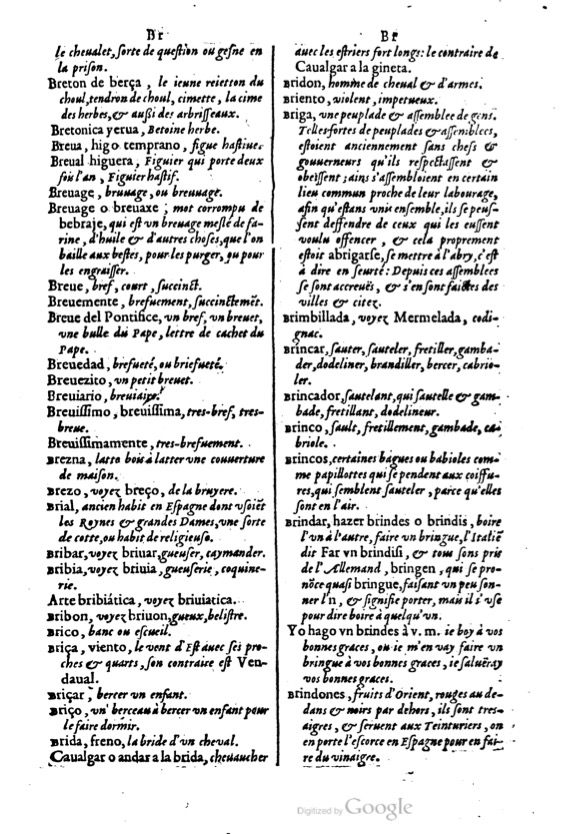 Br
le cheualet, sorte de question ou gesne en
la prison.
Breton de berça, le ieune reietton du
choul, tendron de choul, cimette, la cime
des herbes, & außi des arbrisseaux.
Bretonica yerua, Betoine herbe.
Breua, higo temprano, figue hastiue.
Breual higuera, Figuier qui porte deux
fois l'an, Figuier hastif.
Breuage, bruuage, ou breuuage.
Breuage o breuaxe; mot corrompu de
bebraje, qui est vn breuuage meslé de fa-
rine, d'huile & d'autres choses, que l'on
baille aux bestes, pour les purger, ou pour
les engraisser.
Breue, bref, court, succinct.
Breuemente, brefuement, succinctemẽt.
Breue del Pontifice, vn bref, vn breuet,
vne bulle du Pape, lettre de cachet du
Pape.
Breuedad, brefueté, ou briefueté.
Breuezito, vn petit breuet.
Breuiario, breuiaire.
Breuissimo, breuissima, tres-bref, tres-
breue.
Breuissimamente, tres-brefuement.
Brezna, latte bois à latter vne couuerture
de maison.
Brezo, voyez breço, de la bruyere.
Brial, ancien habit en Espagne dont vsoiẽt
les Roynes & grandes Dames, vne sorte
de cotte, ou habit de religieuse.
Bribar, voyez briuar, gueuser, caymander.
Bribia, voyez briuia, gueuserie, coquine-
rie.
Arte bribiática, voyez briuiatica.
Bribon, voyez briuon, gueux, belistre.
Brico, banc ou escueil.
Briça, viento, le vent d'Est auec ses pro-
ches & quarts, son contraire est Ven-
daual.
Briçar, bercer vn enfant.
Briço, vn berceau à bercer vn enfant pour
le faire dormir.
Brida, freno, la bride d'vn cheval.
Caualgar o andar a la brida, cheuaucher
Br
auec les estriers fort longs: le contraire de
Caualgar a la gineta.
Bridon, homme de cheual & d'armes.
Briento, violent, impetueux.
Briga, vne peuplade & assemblee de gens.
Telles fortes de peuplades & assemblees,
estoient anciennement sans chefs &
gouuerneurs qu'ils respectassent &
obeïssent; ains s'assembloient en certain
lieu commun proche de leur labourage,
afin qu'estans vnis ensemble, ils se peus-
sent deffendre de ceux qui les eussent
voulu offencer, & cela proprement
estoit abrigarse, se mettre à l'abry, c'est
à dire en seurté: Depuis ces assemblees
se sont accreuës, & s'en sont faictes des
villes & citez.
Brimbillada, voyez Mermelada, codi-
gnac.
Brincar, sauter, sauteler, fretiller, gamba-
der, dodeliner, brandiller, bercer, cabrio-
ler.
Brincador, sautelant, qui sautelle & gam-
bade, fretillant, dodelineur.
Brinco, sault, fretillement, gambade, ca-
briole.
Brincos, certaines bagues ou babioles com-
me papillottes qui se pendent aux coiffu-
res, qui semblent sauteler, parce qu'elles
sont en l'air.
Brindar, hazer brindes o brindis, boire
l'vn à l'autre, faire vn bringue, l'Italiẽ
dit Far vn brindisi, & tous sons pris
de l'Allemand, bringen, qui se pro-
nõce quasi bringue, faisant vn peu son-
ner l'n, & signifie porter, mais il s'vse
pour dire boire à quelqu'vn.
Yo hago vn brindes à v. m. ie boy à vos
bonnes graces, ou ie m'en vay faire vn
bringue à vos bonnes graces, ie salueray
vos bonnes graces.
Brindones, fruits d'Orient, rouges au de-
dans & noirs par dehors, ils sont tres-
aigres, & seruent aux Teinturiers, on
en porte l'escorce en Espagne pour en fai-
re du vinaigre.
Digitized by Google